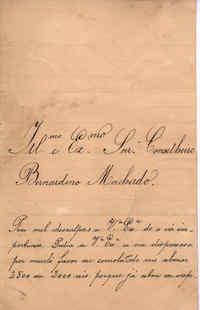 Ill.mo e Ex.mo Snr. Conselheiro
Bernardino Machado.
Peço mil desculpas a V.a Ex.a de o vir im-
portunar. Pedia a V.a Ex.a a me dispensasse
por muito favor ao consulado me abonar
2500 ou 3000 reis porque já estou em